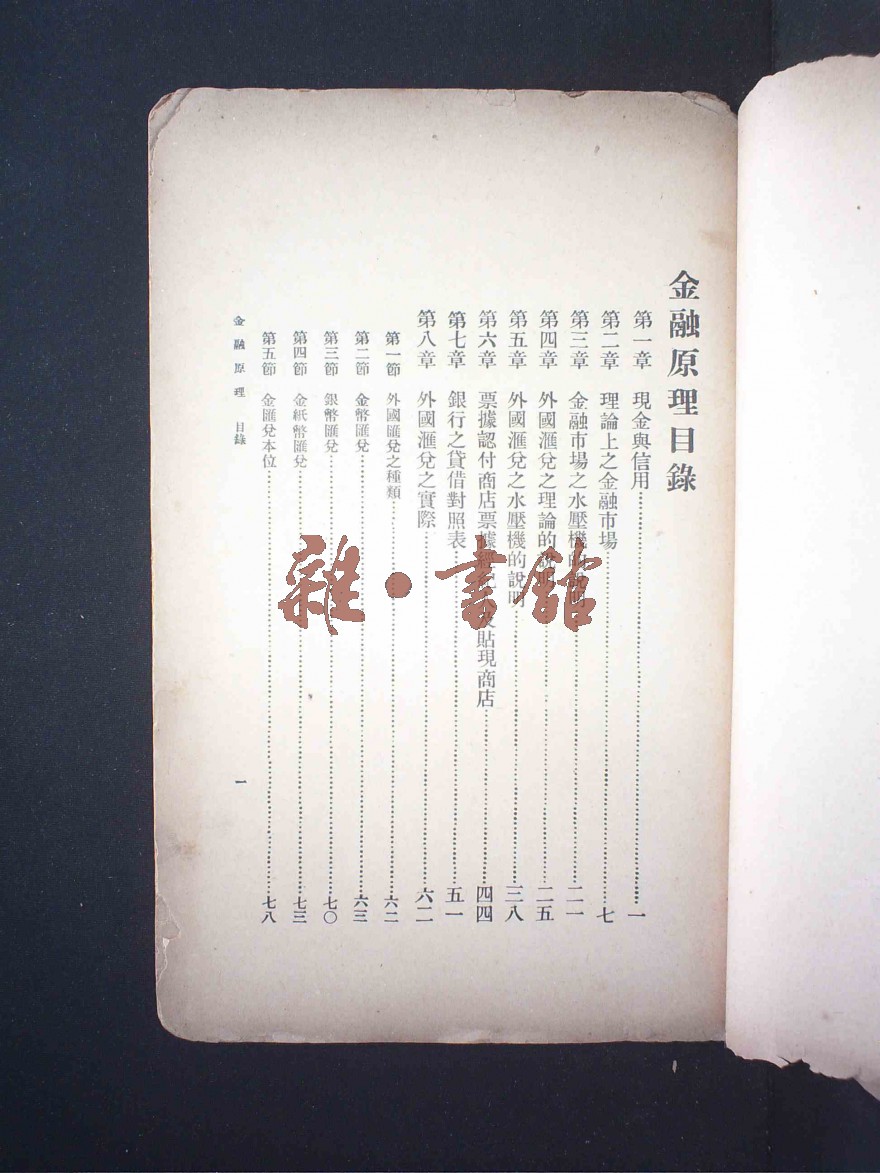 金融原理目錄
第一章 現金與信用……一
第二章 理論上之金融市場……七
第三章 金融市場之水壓機的說明……二一
第四章 外國滙兌之理論的說明……二五
第五章 外國滙兌之水壓機的說明……三八
第六章 票據認付商店票據經紀 及貼現商店……四四
第七章 銀行之貸借對照表……五一
第八章 外國滙兌之實際……六二
第一節 外國匯兌之種類……六二
第二節 金幣匯兌……六三
第三節 銀幣匯兌……七〇
第四節 金紙幣匯兌……七三
第五節 金匯兌本位……七八
金融原理 目錄
一
雜·書館